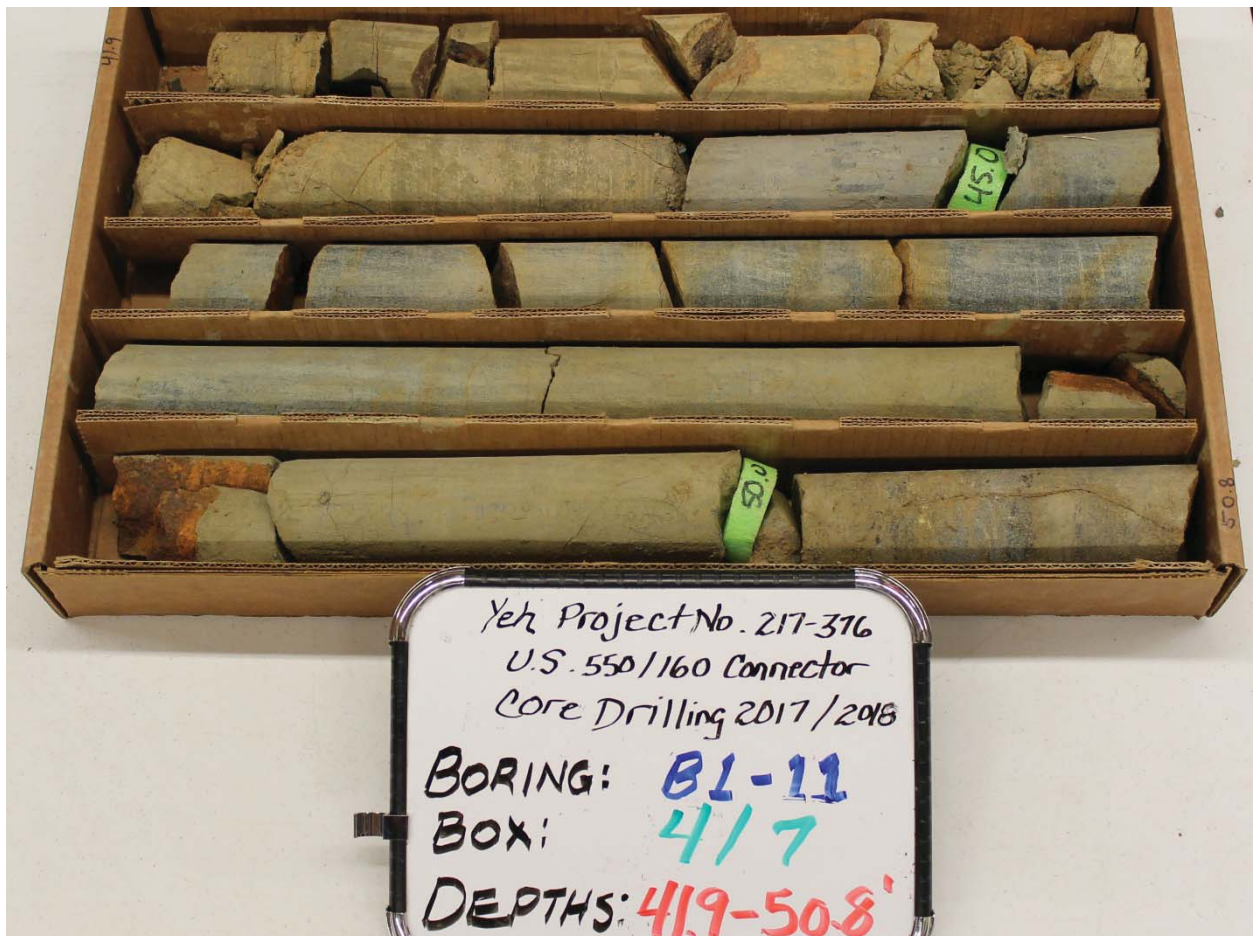 41.9
45.0
50.0
50.8
Yeh Project No. 217-376
U.S. 550/160 Connector
Core Drilling 2017/2018
BORING: B1-11
BOX: 4/7
DEPTHS: 41.9-50.8'